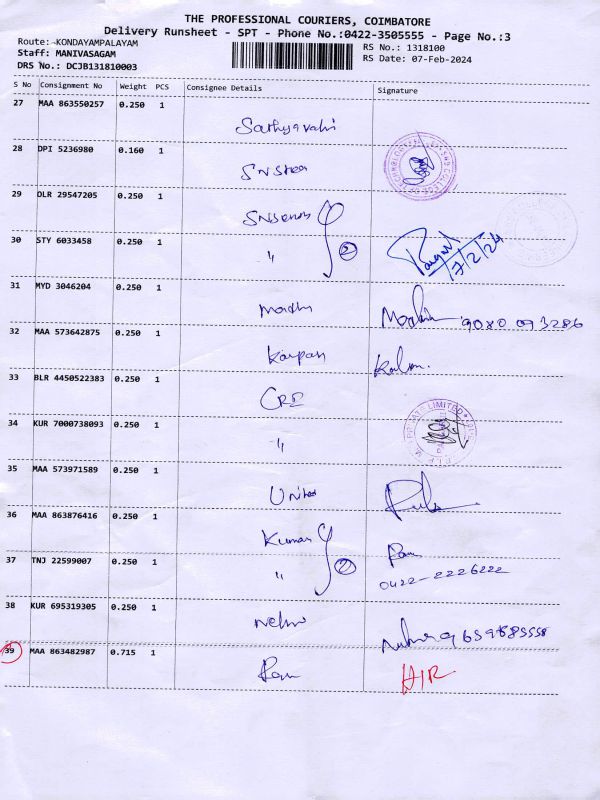 THE PROFESSIONAL COURIERS, COIMBATORE
Delivery Runsheet - SPT - Phone No.:0422-3505555 - Page No.:3
Route:-KONDAYAMPALAYAM
Staff: MANIVASAGAM
DRS No.: DCJB131810003
RS No.: 1318100
RS Date: 07-Feb-2024
S No Consignment No Weight PCS Consignee Details Signature
27 MAA 863550257 0.250 1 Sathyavahi
28 DPI 5236980 0.160 1
29 DLR 29547205 0.250 1
30 STY 6033458 0.250 1 " 2 7/2/24
31 MYD 3046204 0.250 1 Madhu 9080 093286
32 MAA 573642875 0.250 1 Karpan
33 BLR 4450522383 0.250 1 CRI
34 KUR 7000738093 0.250 1 "
35 MAA 573971589 0.250 1 United
36 MAA 863876416 0.250 1 Kumar Ram
37 TNJ 22599007 0.250 1 " 2 0422-2226222
38 KUR 695319305 0.250 1 Nehru
39 MAA 863482987 0.715 1 Ram H/R